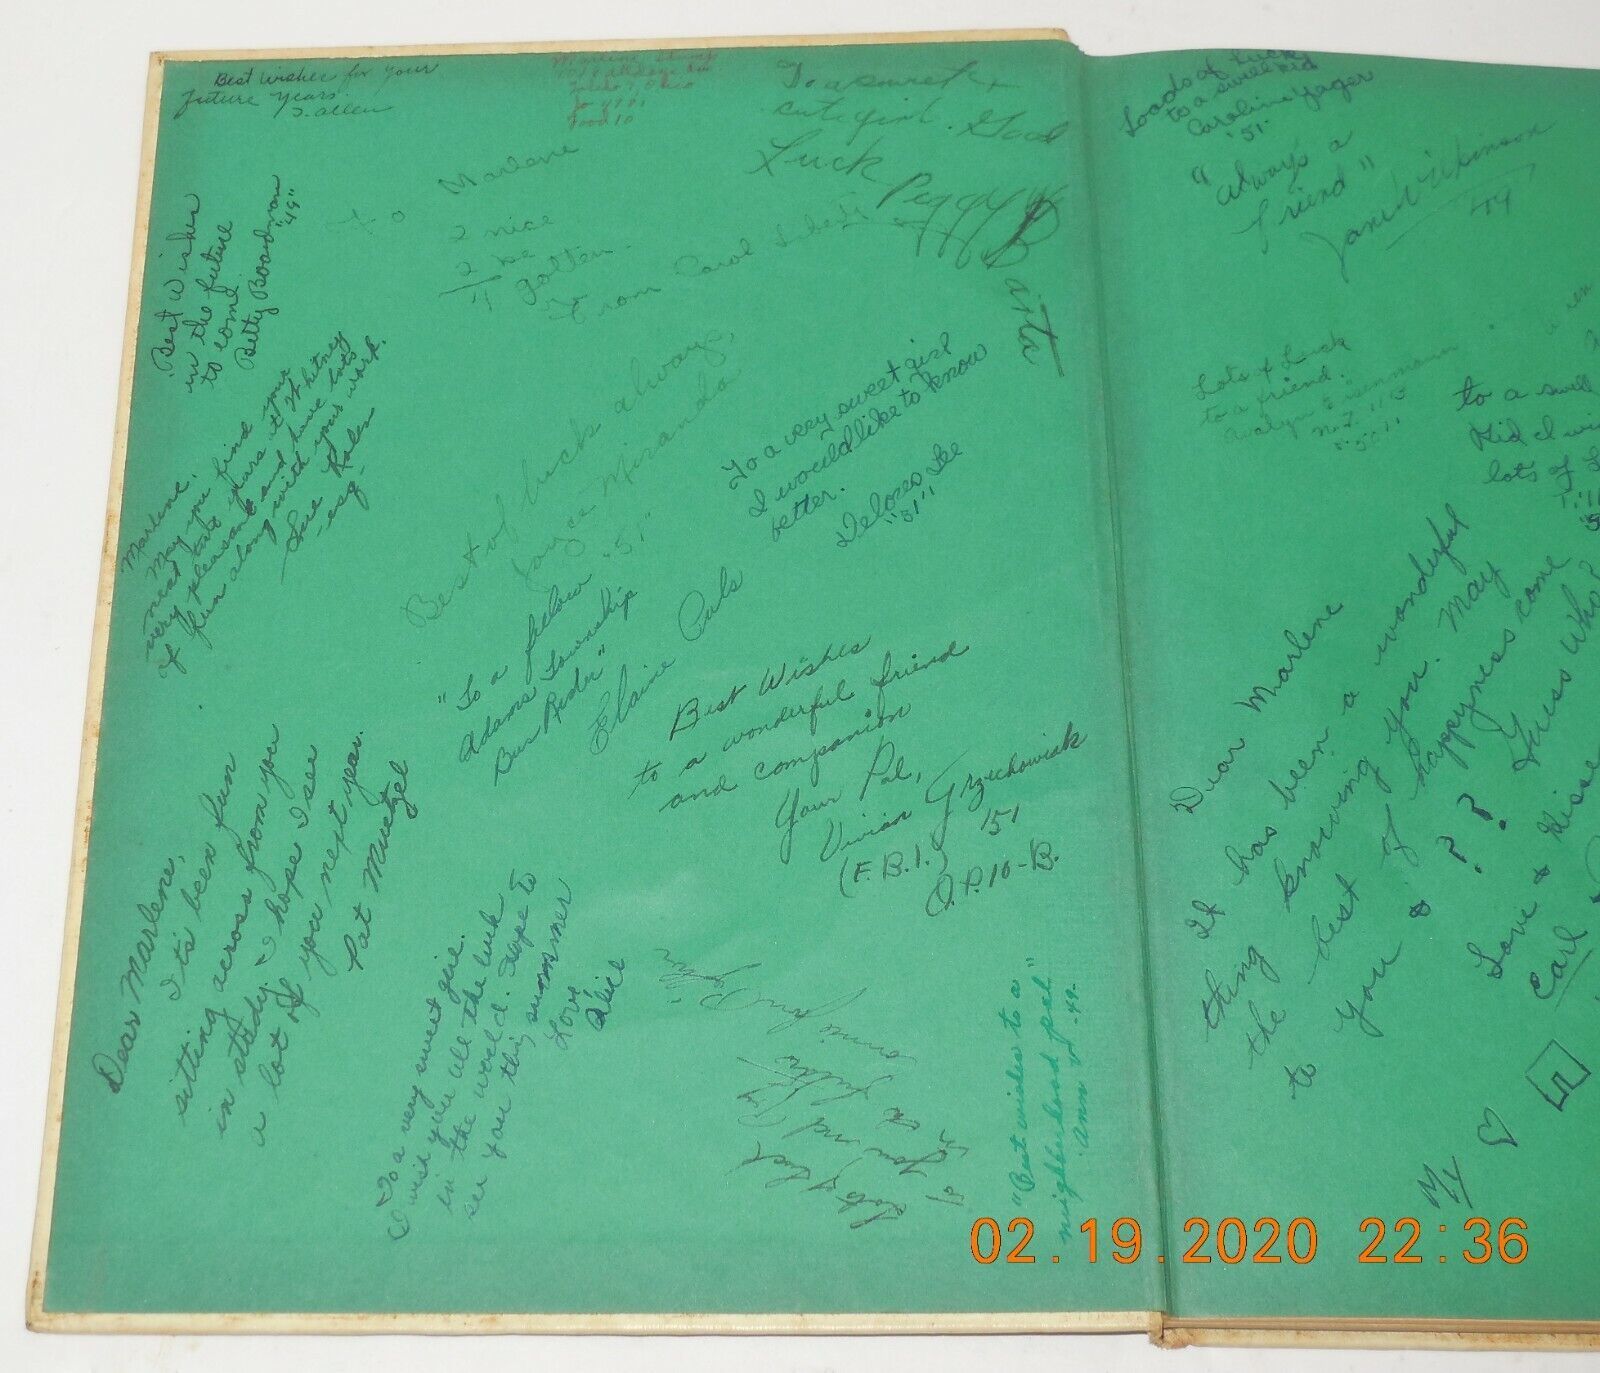 Best wishes for your
future years.
S. Allen
Marlene
Toledo 7, Ohio
To a sweet &
cute girl. Good
Luck
Peggy
To Marlene
2 nice
2 be
4 gotten.
From Carol
Best Wishes
in the future
to come
Betty Boardman
"49"
Marlene,
May you find your
next two years at Whitney
very pleasant and have lots
of fun along with your work.
Sue
esq.
Best of luck always,
Joyce Miranda
"51"
To a very sweet girl
I would like to know
better.
Delores Lee
"51"
"To a fellow
Adams Township
Bus Rider"
Elaine Puls
Best Wishes
to a wonderful friend
and companion
Your Pal,
Vivian Grzechowiak
'51
(F.B.I.)
O.P. 10-B.
Dear Marlene,
It's been fun
sitting across from you
in study. I hope I see
a lot of you next year.
Pat Muetzel
To a very sweet girl.
I wish you all the luck
in the world. Hope to
see you this summer
Love,
Alice
Lots of Luck
"Best wishes to a
neighborhood pal"
Ann
49.
Loads of Luck
to a swell kid
Caroline Yager
'51'
"Always a
friend"
Janet Wilkinson
Lots of Luck
to a friend.
to a swell
Kid I wi
lots of
Dear Marlene
It has been a wonderful
thing knowing you. May
the best of happyness come
to you & ? ? ? Guess Who?
Love & Kisse
Carl
My
02.19.2020 22:36